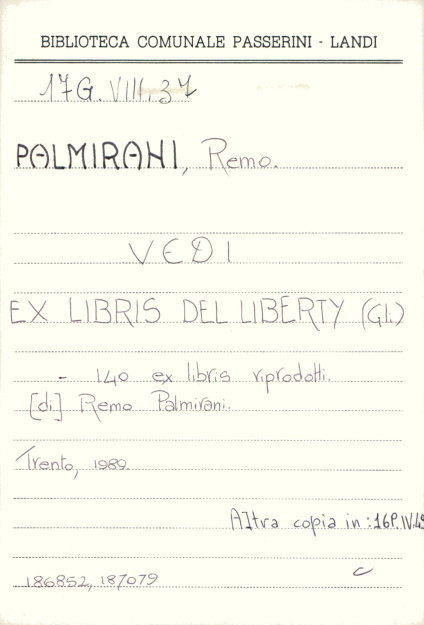 BIBLIOTECA COMUNALE PASSERINI - LANDI
17G.VIII.37
PALMIRANI, Remo.
VEDI
EX LIBRIS DEL LIBERTY (Gli)
- 140 ex libris riprodotti.
[di] Remo Palmirani.
Trento, 1989.
Altra copia in: 16P.IV.
186852, 187079
c